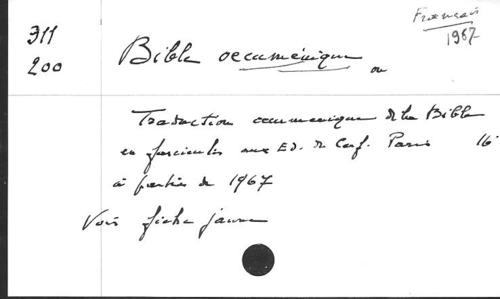 Français
1967
311
200
Bible oecuménique
ou
Traduction oecumenique de la Bible
en fascicules aux Ed. du Cerf. Paris 16
à partir de 1967
Voir fiche jaune